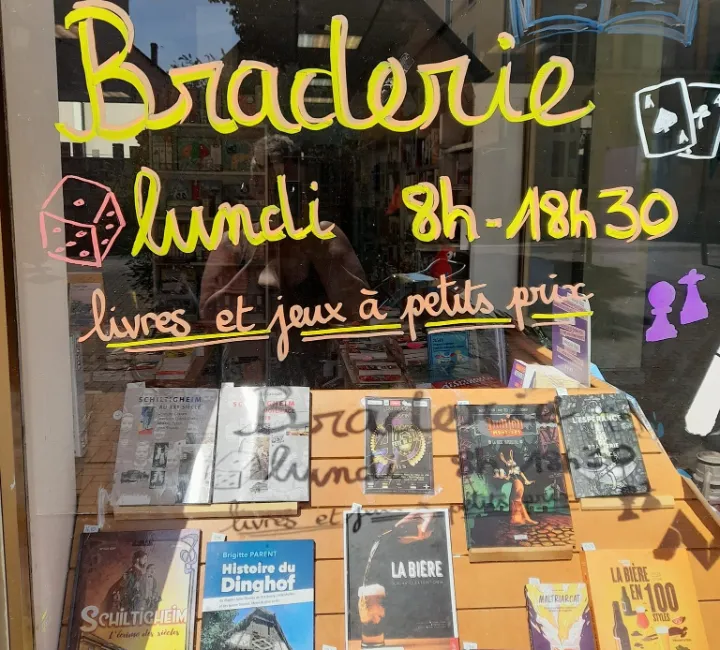 Braderie
lundi 8h-18h30
livres et jeux à petits prix
SCHILTIGHEIM
SCHILTIGHEIM
L'ESPÉRANCE
SCHILTIGHEIM
L'écume des siècles
Brigitte PARENT
Histoire du
Dinghof
LA BIÈRE
MALTRIARCAT
LA BIÈRE
EN 100
STYLES